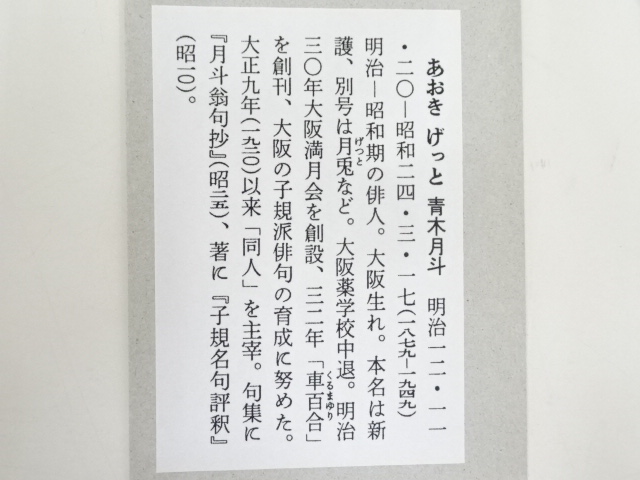 あおき げっと 青木月斗 明治一二・一一
・二〇―昭和二四・三・一七(一八七九―一九四九)
明治―昭和期の俳人。大阪生れ。本名は新
護、別号は月兎げっとなど。大阪薬学校中退。明治
三〇年大阪満月会を創設、三二年「車百合くるまゆり」
を創刊、大阪の子規派俳句の育成に努めた。
大正九年(一九二〇)以来「同人」を主宰。句集に
『月斗翁句抄』(昭二五)、著に『子規名句評釈』
(昭一〇)。